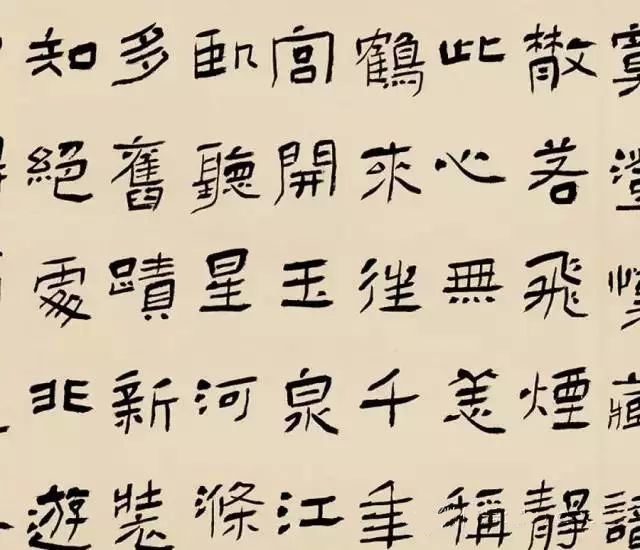 散若飛煙靜
此心無稱
鶴來往千年
宮開玉泉江
臥聽星河滌
多舊蹟新裝
知絕處北遊